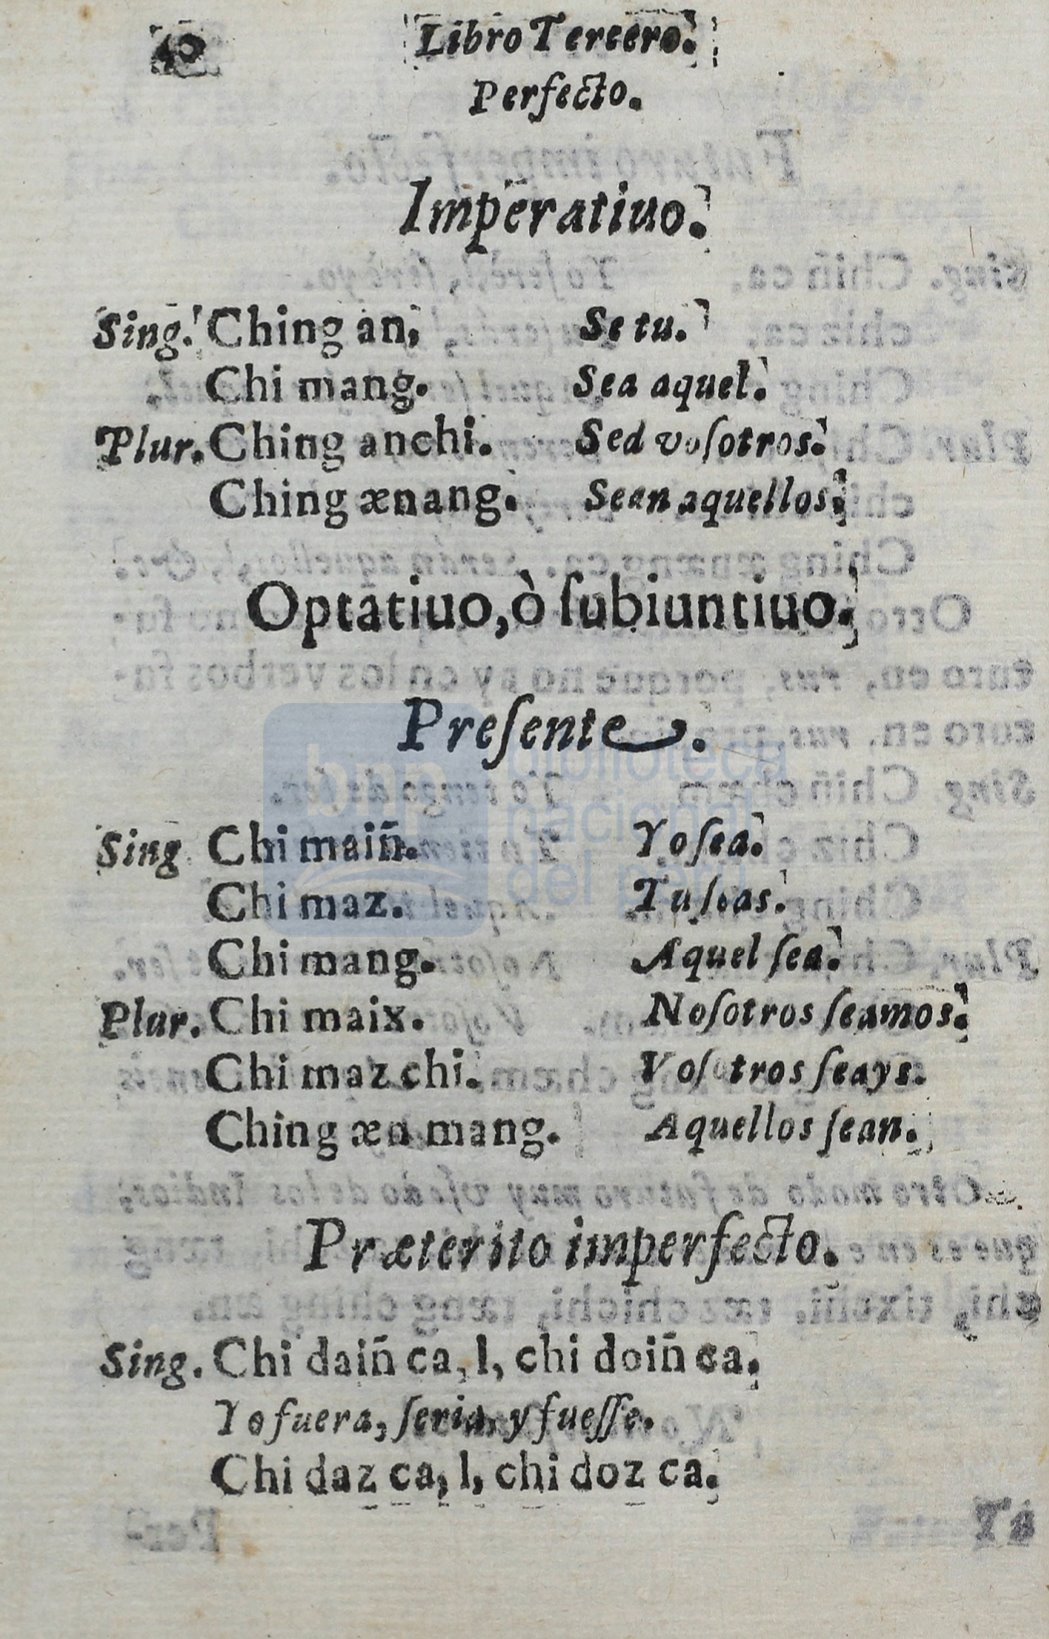 40 Libro Tercero.
Perfecto.
Imperatiuo.
Sing. Ching an, Se tu.
Chi mang. Sea aquel.
Plur. Ching anchi. Sed voſotros.
Ching ænang. Sean aquellos.
Optatiuo, ò ſubiuntiuo.
Preſente.
Sing Chi maiñ. Yo ſea.
Chi maz. Tu ſeas.
Chi mang. Aquel ſea.
Plur. Chi maix. Noſotros ſeamos.
Chi maz chi. Voſotros ſeays.
Ching æn mang. Aquellos ſean.
Præterito imperfecto.
Sing. Chi daiñ ca, l, chi doiñ ca.
Yo fuera, ſeria, y fueſſe.
Chi daz ca, l, chi doz ca.
Tu
bnp biblioteca
nacional
del perú